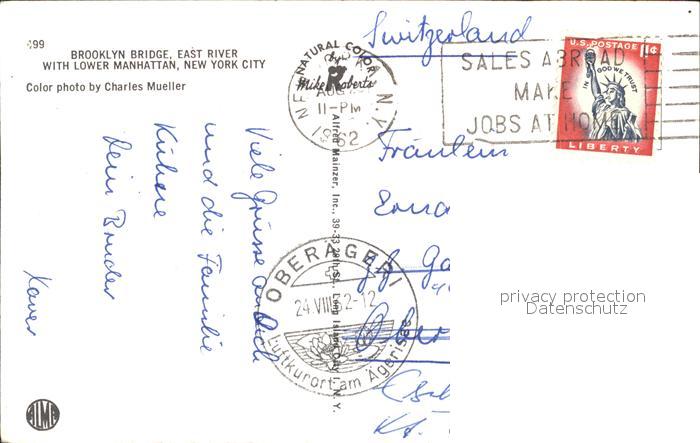 Switzerland
699
BROOKLYN BRIDGE, EAST RIVER
WITH LOWER MANHATTAN, NEW YORK CITY
Color photo by Charles Mueller
NATURAL COLOR
by
Mike Roberts
N.Y.
AUG
11-PM
1962
SALES ABROAD
MAKE
JOBS AT HOME
U.S. POSTAGE 11¢
IN GOD WE TRUST
LIBERTY
Viele Grüsse an Dich
und die Familie
Dein Bruder
Xaver
Alfred Mainzer, Inc., 39-33 29th St., Long Island City 1, N. Y.
Fräulein
Erna
OBERÄGERI
24.VIII.62-12
Luftkurort am Ägerisee
Kt.
privacy protection
Datenschutz